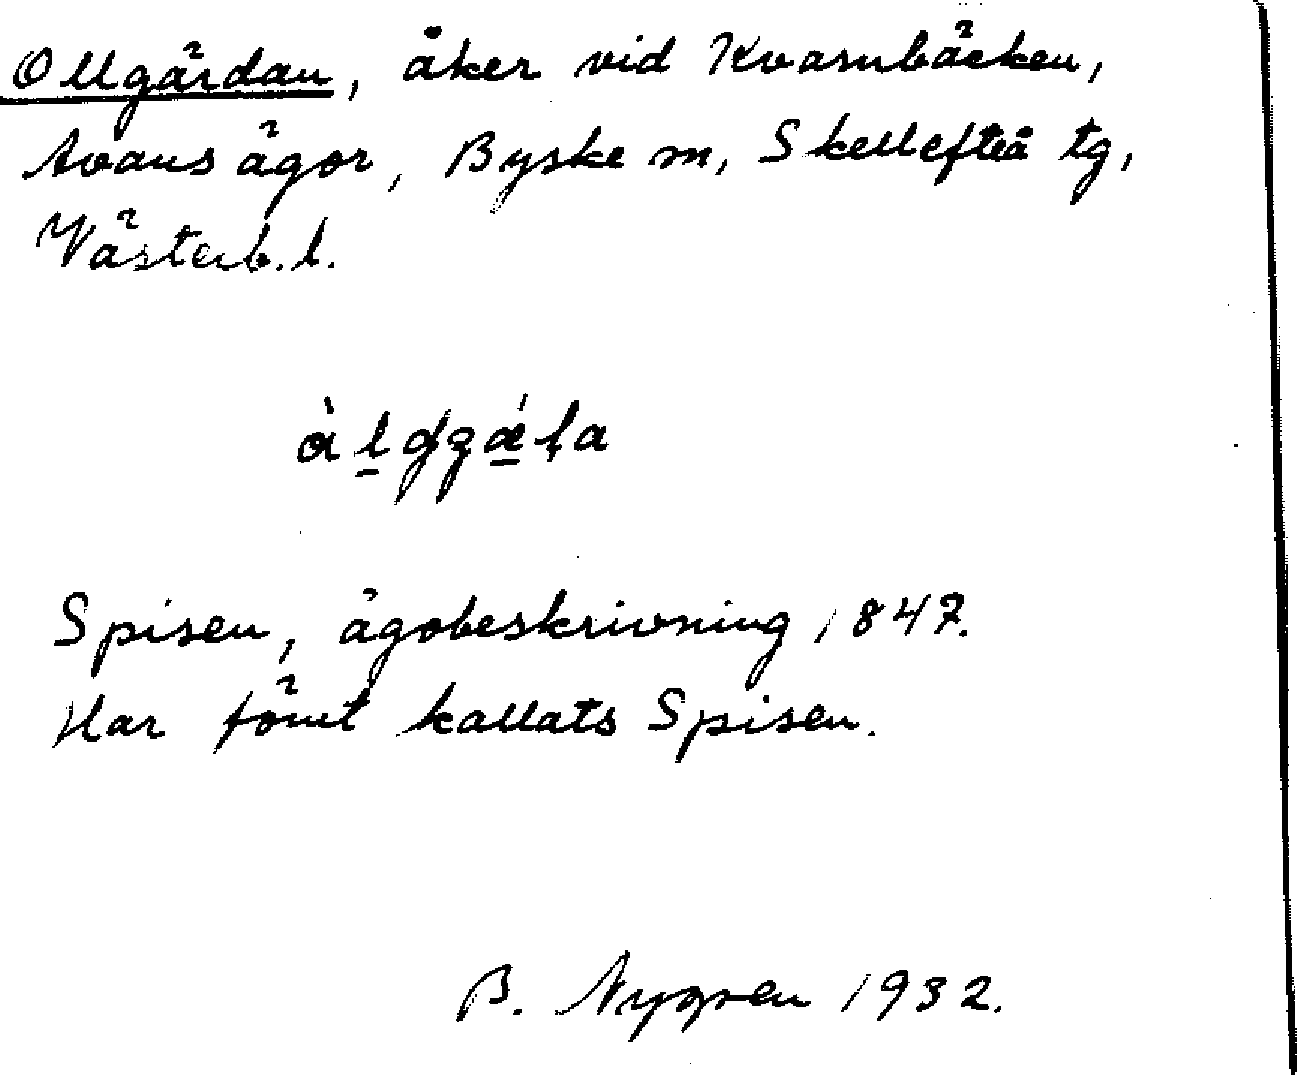 Ollgärdan, åker vid Kvarnbäcken,
Avans ägor, Byske sn, Skellefteå tg,
Västerb. l.
Spisen, ägobeskrivning 1847.
Har förut kallats Spisen.
B. Nygren 1932.